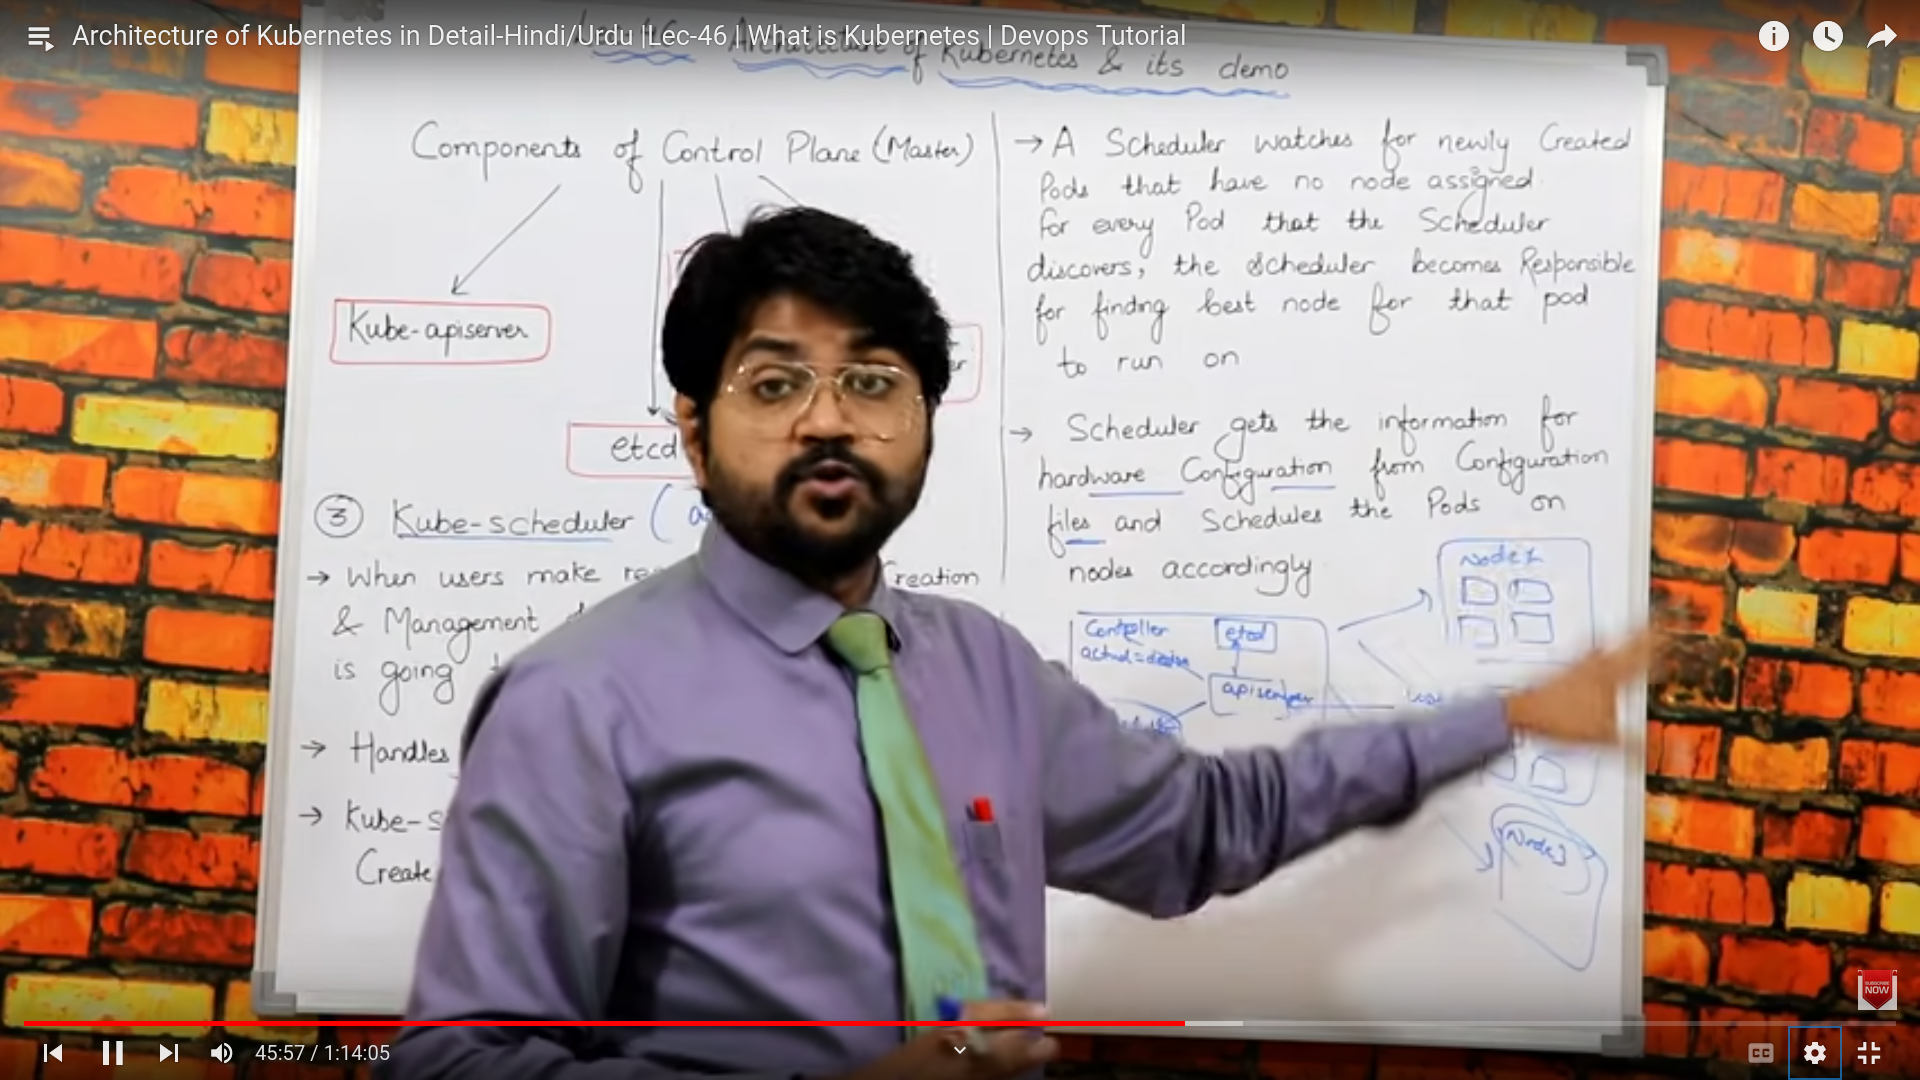 Architecture of Kubernetes in Detail-Hindi/Urdu |Lec-46 | What is Kubernetes | Devops Tutorial
Architecture of Kubernetes & its demo
Components of Control Plane (Master)
Kube-apiserver
etcd
③ Kube-scheduler (
→ When users make creation
& Management
is going
→ Handles
→ Kube-s
Create
→ A Scheduler watches for newly Created
Pods that have no node assigned.
For every Pod that the Scheduler
discovers, the Scheduler becomes Responsible
for finding best node for that pod
to run on
→ Scheduler gets the information for
hardware Configuration from Configuration
files and Schedules the Pods on
nodes accordingly
Node1
Controller
etcd
actual=
apiserver
Node3
SUBSCRIBE
NOW
45:57 / 1:14:05
CC